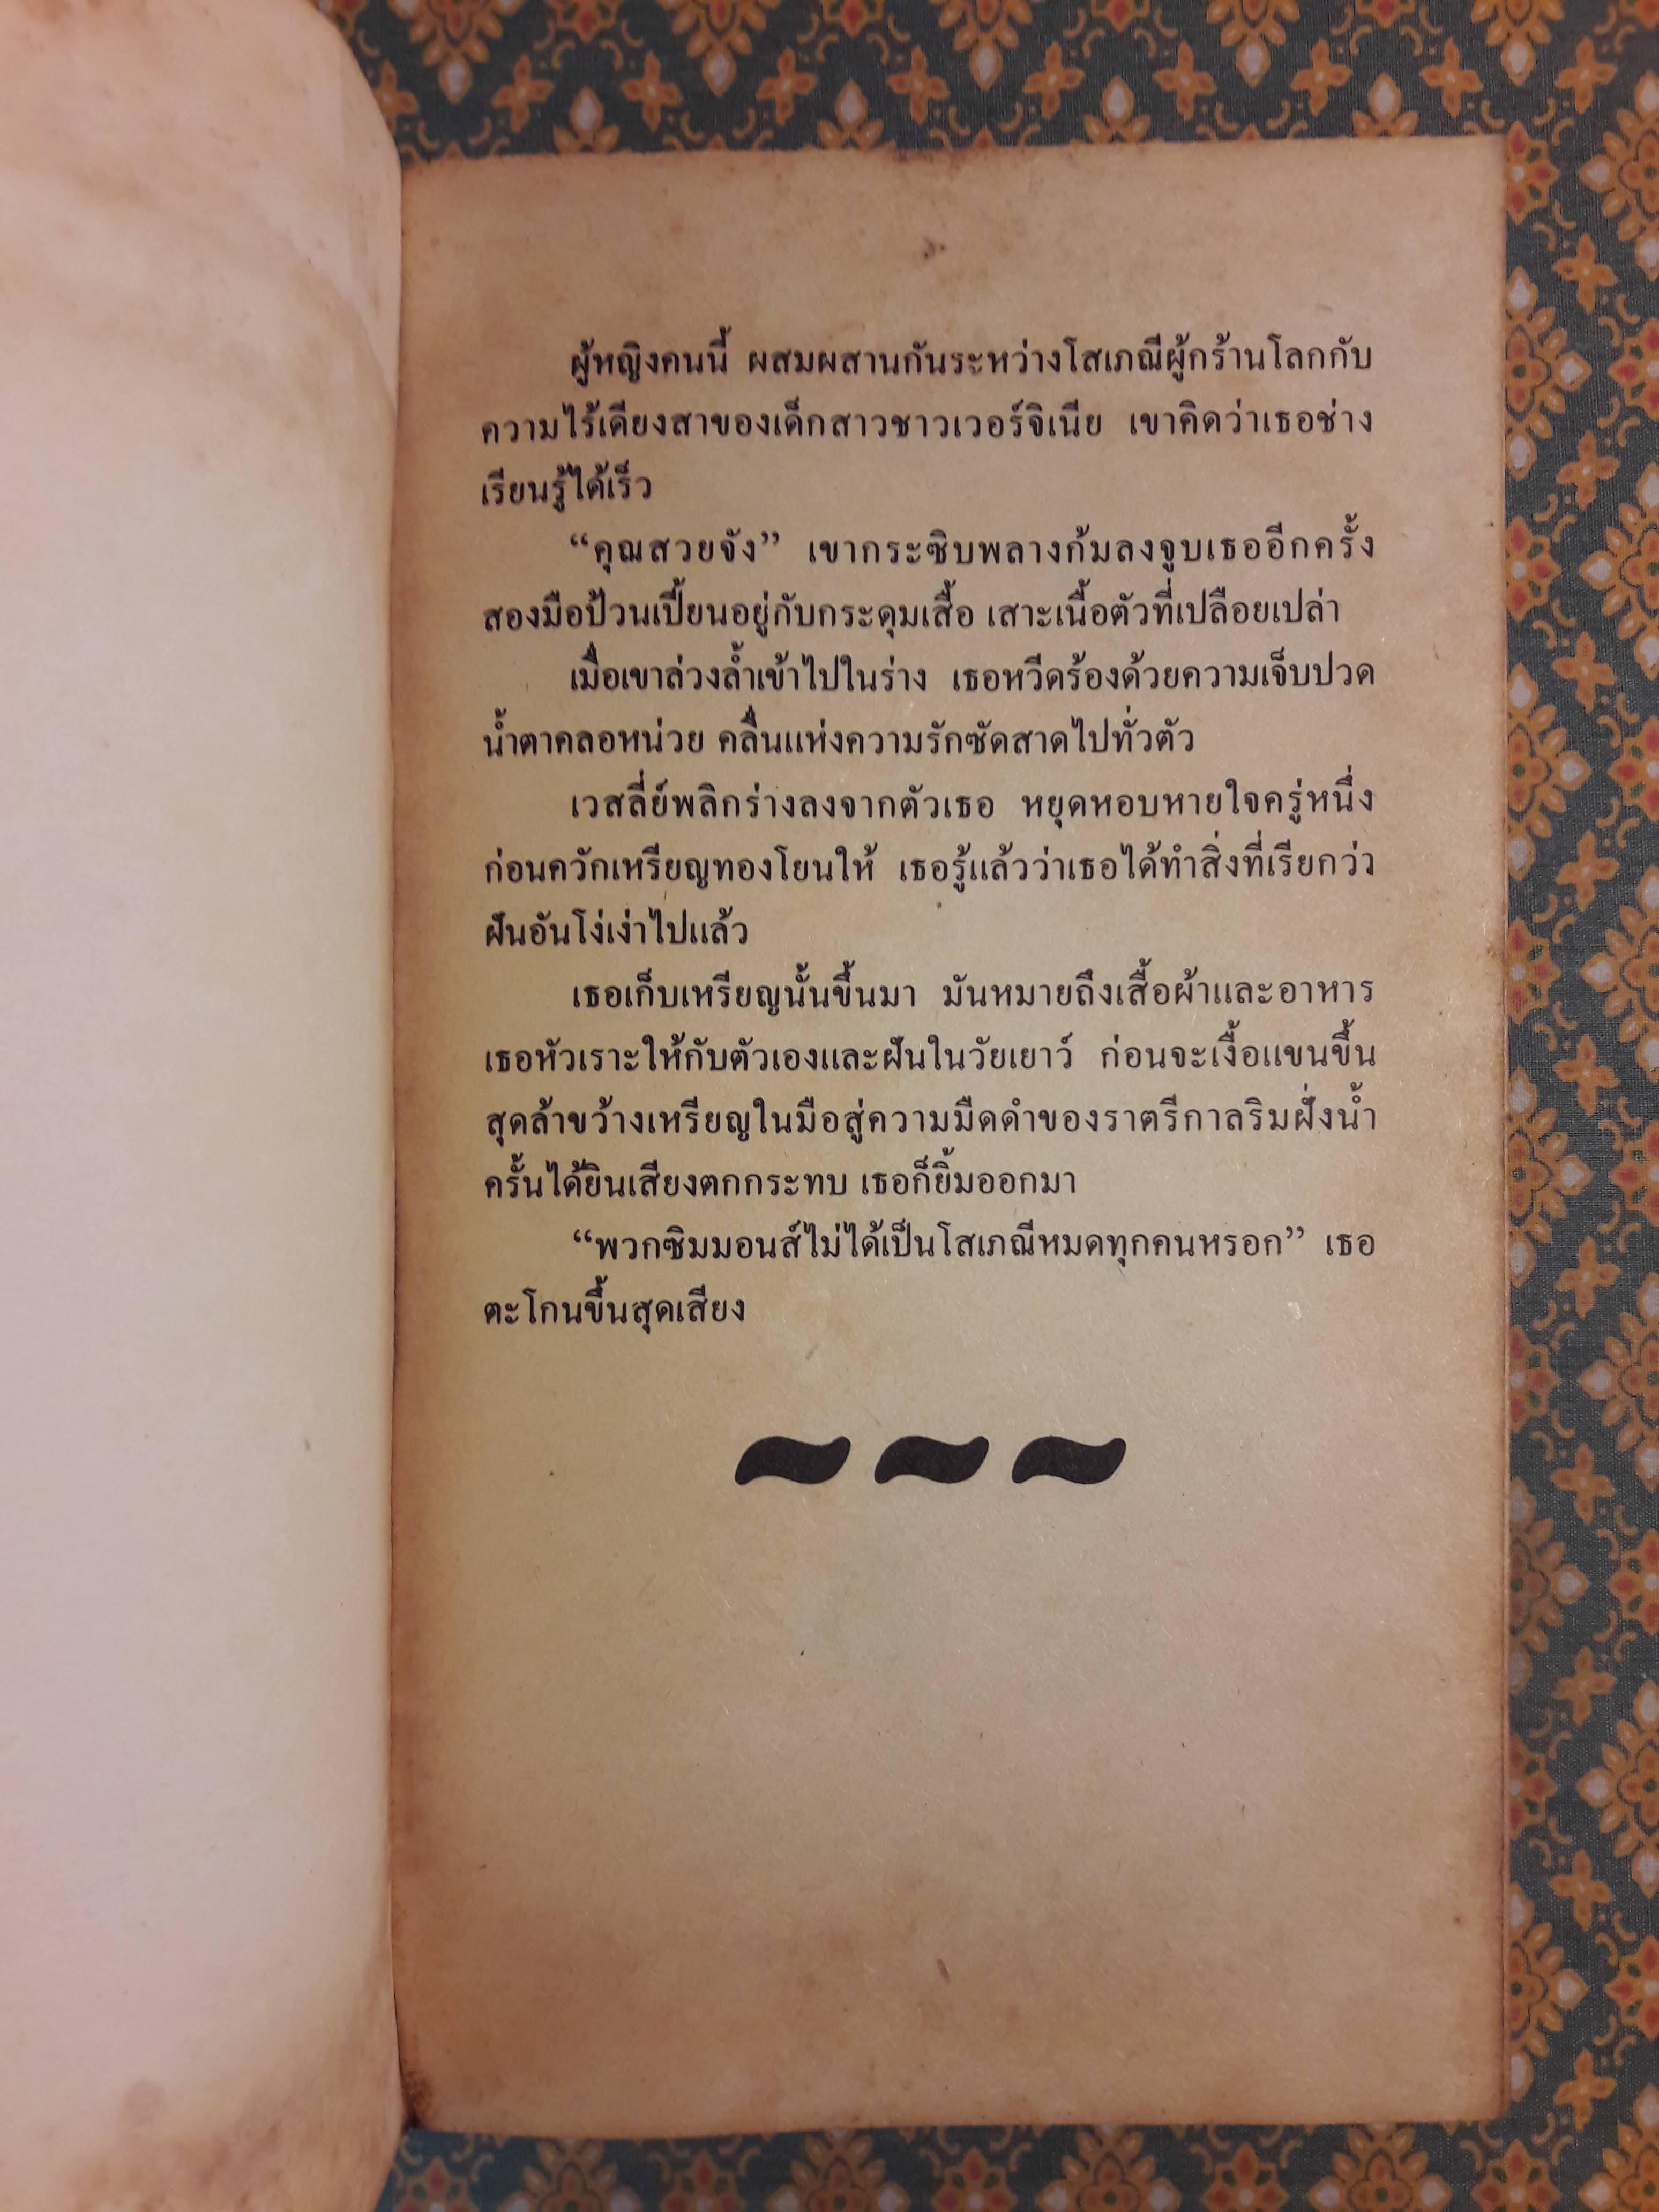 ผู้หญิงคนนี้ ผสมผสานกันระหว่างโสเภณีผู้กร้านโลกกับ
ความไร้เดียงสาของเด็กสาวชาวเวอร์จิเนีย เขาคิดว่าเธอช่าง
เรียนรู้ได้เร็ว
“คุณสวยจัง” เขากระซิบพลางก้มลงจูบเธออีกครั้ง
สองมือป้วนเปี้ยนอยู่กับกระดุมเสื้อ เสาะเนื้อตัวที่เปลือยเปล่า
เมื่อเขาล่วงล้ำเข้าไปในร่าง เธอหวีดร้องด้วยความเจ็บปวด
น้ำตาคลอหน่วย คลื่นแห่งความรักซัดสาดไปทั่วตัว
เวสลี่ย์พลิกร่างลงจากตัวเธอ หยุดหอบหายใจครู่หนึ่ง
ก่อนควักเหรียญทองโยนให้ เธอรู้แล้วว่าเธอได้ทำสิ่งที่เรียกว่า
ฝันอันโง่เง่าไปแล้ว
เธอเก็บเหรียญนั้นขึ้นมา มันหมายถึงเสื้อผ้าและอาหาร
เธอหัวเราะให้กับตัวเองและฝันในวัยเยาว์ ก่อนจะเงื้อแขนขึ้น
สุดล้าขว้างเหรียญในมือสู่ความมืดดำของราตรีกาลริมฝั่งน้ำ
ครั้นได้ยินเสียงตกกระทบ เธอก็ยิ้มออกมา
“พวกซิมมอนส์ไม่ได้เป็นโสเภณีหมดทุกคนหรอก” เธอ
ตะโกนขึ้นสุดเสียง